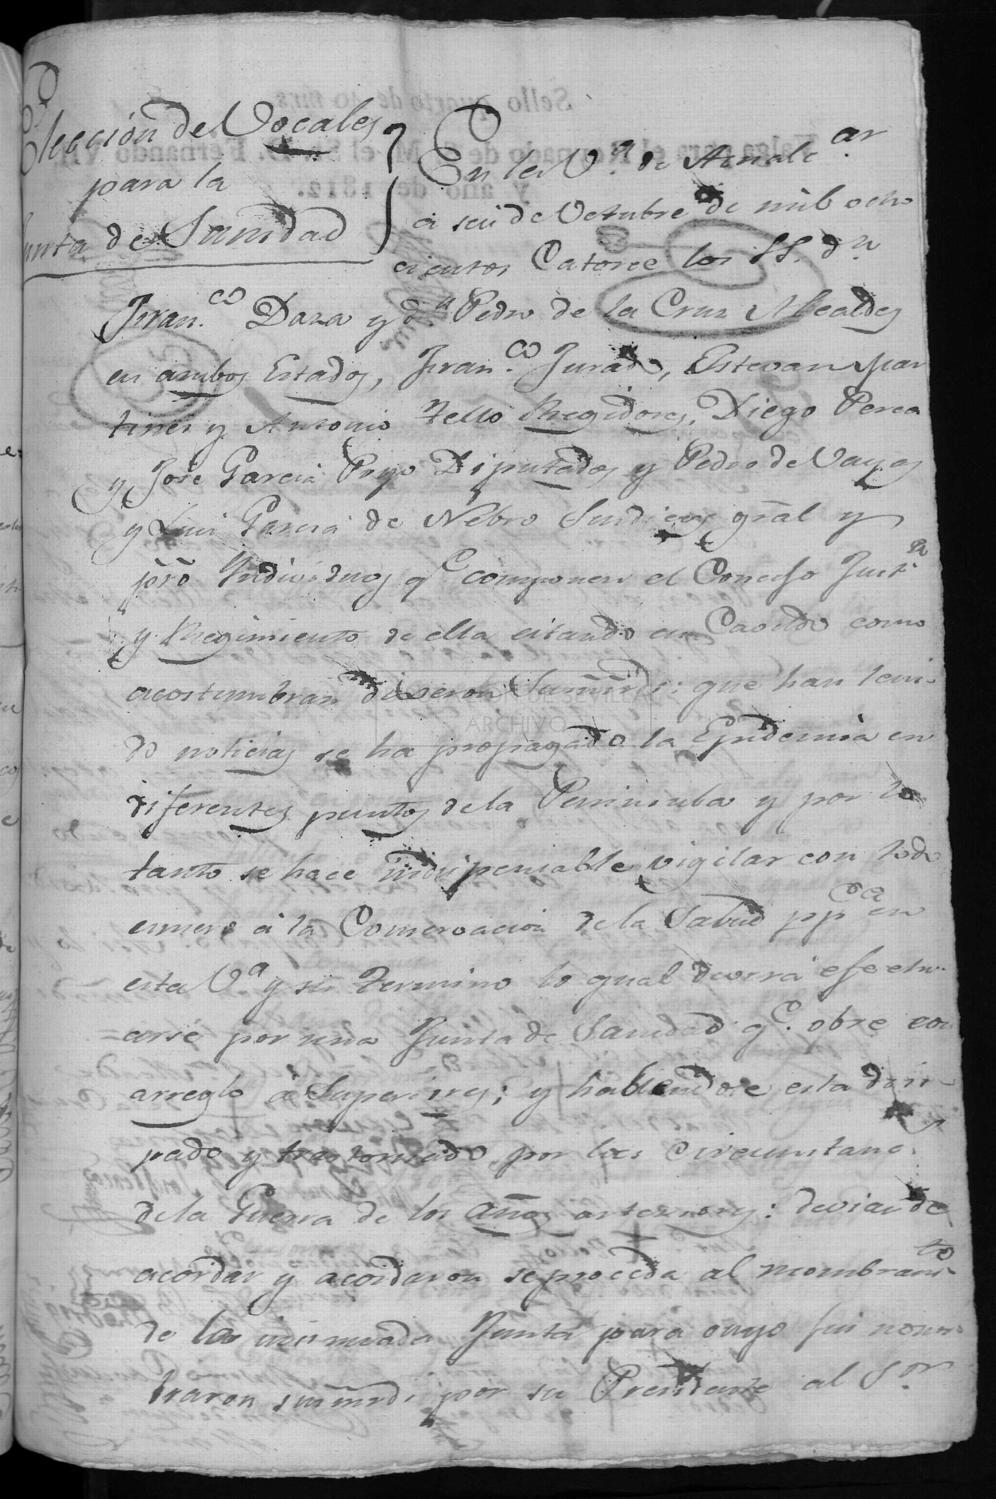 Elección de Vocales
para la
Junta de Sanidad
En la V.ª de Aznalc ar
a seis de Octubre de mil ocho
cientos Catorce los SS. dn
Fran.co Daza y dn Pedro de la Cruz Alcaldes
en ambos Estados, Fran.co Jurado, Estevan Mar
tines y Antonio Tello Regidores, Diego Perea
y José Garcia Pryo Diputados y Pedro de Vargas
y Luis Garcia de Nebro Sindicos gral y
pro Individuos qe componen el Concejo Justª
y Regimiento de ella estando en Cavildo como
acostumbran dixeron Sus mrds: que han teni-
do noticias se ha propagado la Epidemia en
diferentes puntos de la Peninsula y por lo
tanto se hace indispensable vigilar con todo
esmero á la Conservacion de la Salud ppca en
esta V.ª y su Termino lo qual deverá efectu-
arse por una Junta de Sanidad qe. obre con
arreglo á Superiores; y habiendose esta disi-
pado y trastornado por las circunstanc.
de la Guerra de los años anteriores: devian de
acordar y acordaron se proceda al nombram.to
de la insinuada Junta para cuyo fin nom-
braron sus mrds por su Presidente al Sor